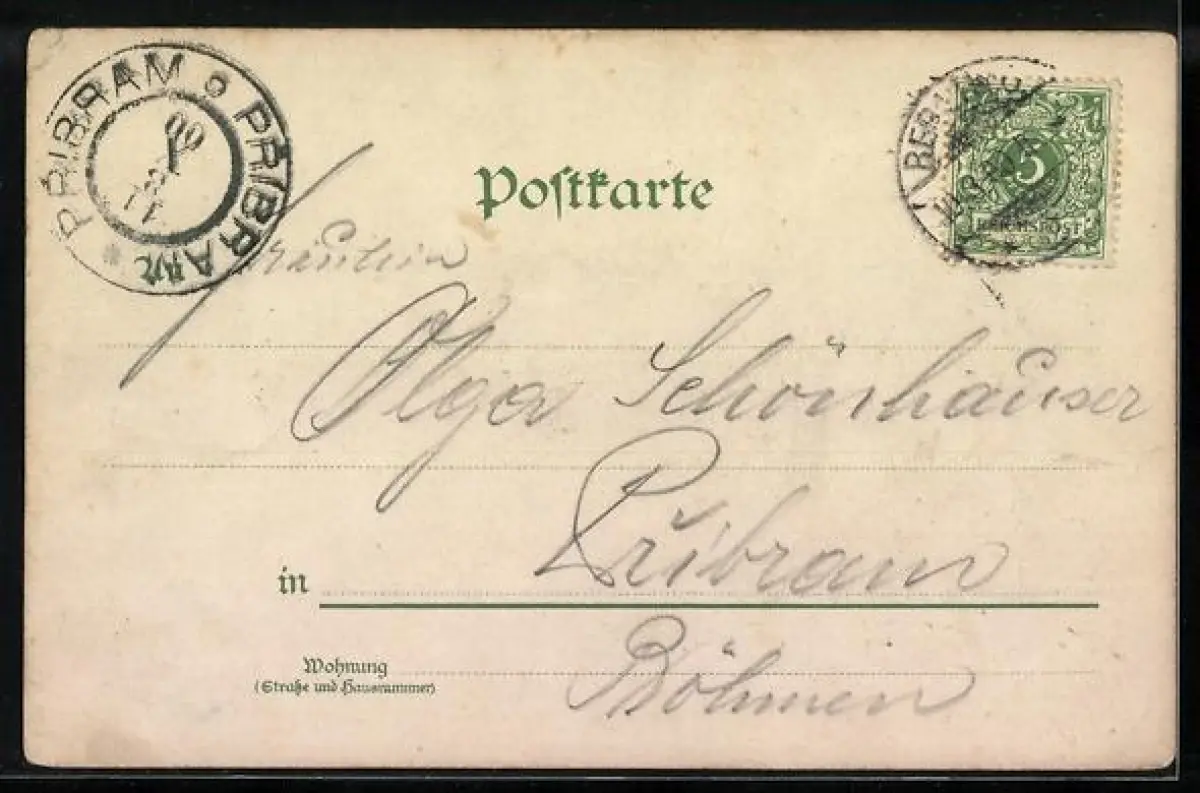 PŘIBRAM PŘIBRAM
Postkarte
5
REICHSPOST
Fräulein
Olga Schönhäuser
in Přibram
Böhmen
Wohnung
(Straße und Hausnummer)